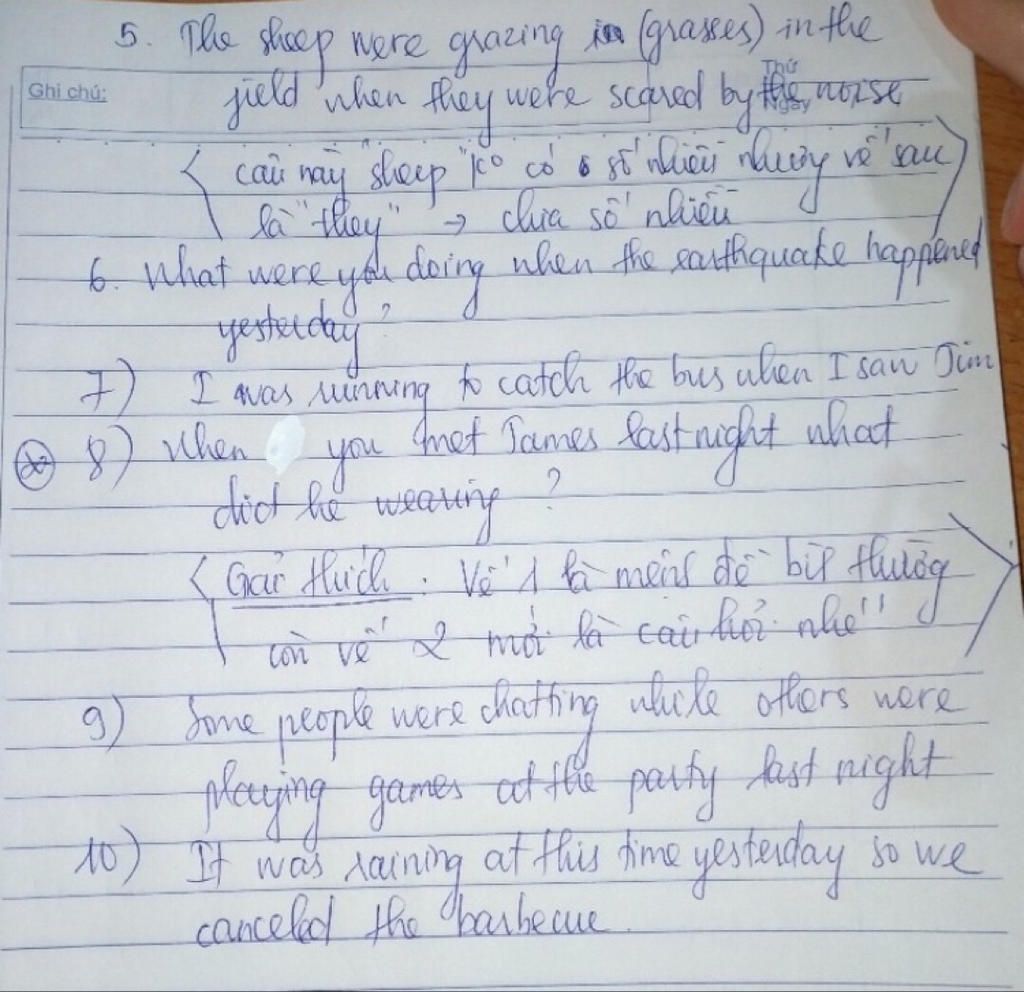 5. The sheep were grazing in (grasses) in the
Ghi chú:
Thứ
Ngày
field when they were scared by the noise
câu này sheep "ko có số nhiều nhưng vế sau
là "they" → chia số nhiều
6. What were you doing when the earthquake happened
yesterday?
7) I was running to catch the bus when I saw Jim
8) When you met James last night what
did he wearing?
Giải thích: Vế 1 là mệnh đề bt thường
còn vế 2 mới là câu hỏi nhé"
9) Some people were chatting while others were
playing games at the party last night
10) It was raining at this time yesterday so we
canceled the barbecue.